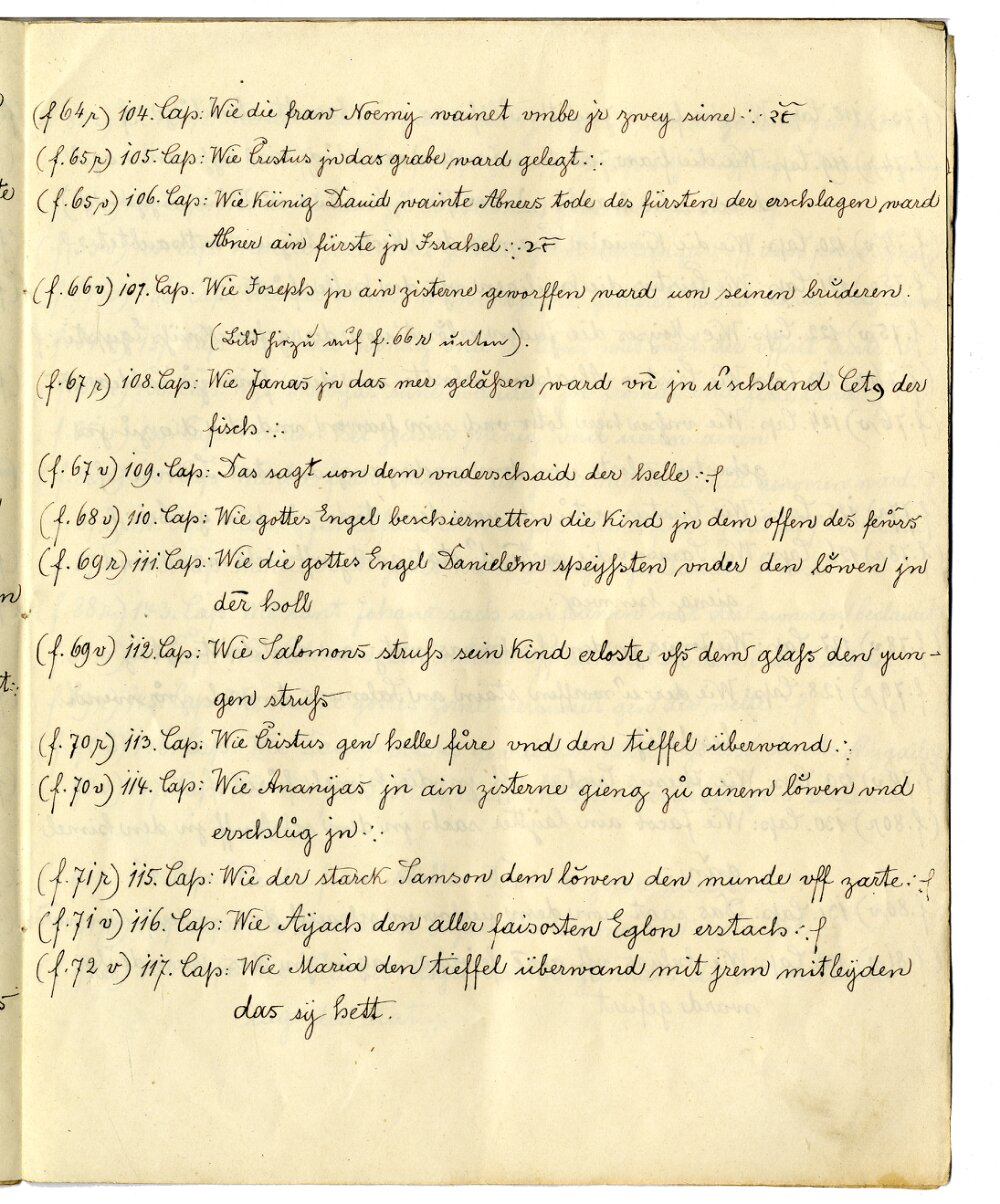 (f 64r) 104. Cap: Wie die fraw Noemÿ wainet vmbe jr zwey süne ∴
(f. 65r) 105. Cap: Wie Cristus jn das grabe ward gelegt ∴
(f. 65v) 106. Cap: Wie künig Dauid wainte Abners tode des fürsten der erschlagen ward
Abner ain fürste jn Israhel ∴
(f. 66v) 107. Cap. Wie Joseph jn ain zisterne geworffen ward uon seinen brůderen.
(Bild hiezu auf f. 66r unten).
(f. 67r) 108. Cap: Wie Janas jn das mer gelåssen ward vn̄ jn der
fisch ∴
(f. 67v) 109. Cap: Das sagt uon dem vnderschaid der helle ∴
(f. 68v) 110. Cap: Wie gottes Engel beschiermetten die kind jn dem offen des
(f. 69r) 111. Cap: Wie die gottes Engel speyßten vnder den löwen jn
der̄ holl
(f. 69v) 112. Cap: Wie Salomons struß sein kind erloste vſs dem glaß den yun-
gen struß
(f. 70r) 113. Cap: Wie Cristus gen helle fůre vnd den tieffel überwand ∴
(f. 70v) 114. Cap: Wie Ananÿas jn ain zisterne gieng zů ainem löwen vnd
erschlůg jn ∴
(f. 71r) 115. Cap: Wie der starck Samson dem löwen den munde vff zarte ∴
(f. 71v) 116. Cap: Wie Aÿach den aller faisosten Eglon erstach ∴
(f. 72 v) 117. Cap: Wie Maria den tieffel überwand mit jrem mitleÿden
das sÿ hett.